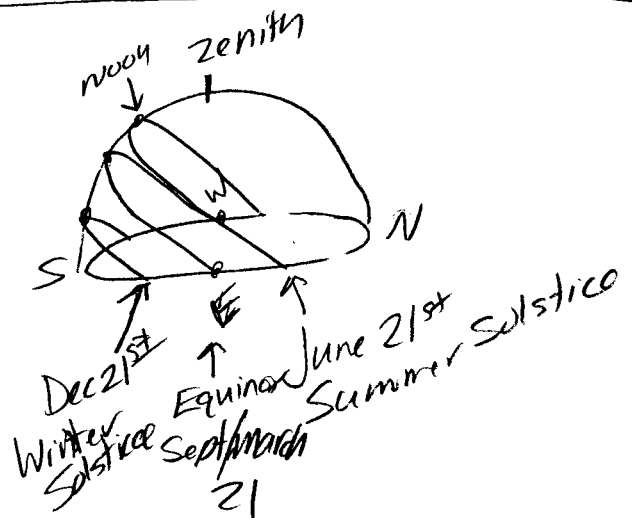 noon
Zenith
W
S
N
E
Dec 21st
Winter
Solstice
Equinox
Sept/march
21
June 21st
Summer Solstice